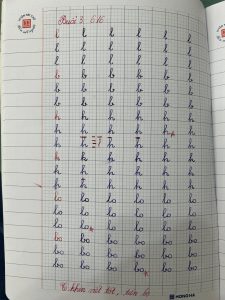 l l l l l l
l l l l l l
l l l l l l
b b b b b b
b b b b b b
b b b b b b
h h h h h h
h h h h h h
h h h h h h
h h h h h h
h h h h h h
h h h h h h
lo lo lo lo lo lo
lo lo lo lo lo lo
lo lo lo lo lo lo
bo bo bo bo bo bo
bo bo bo bo bo bo
bo bo bo bo bo bo
khen nét tốt,
HONG HA